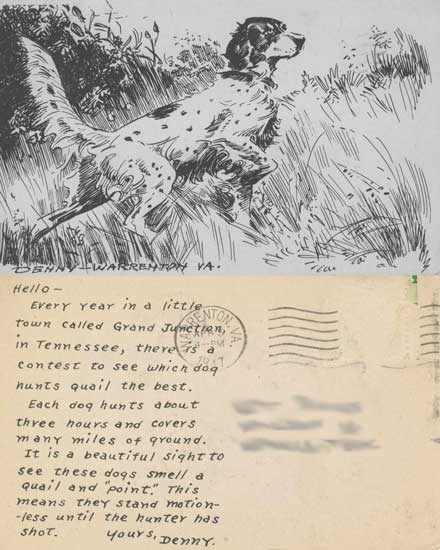 DENNY – WARRENTON VA.
Hello –
Every year in a little
town called Grand Junction,
in Tennessee, there is a
contest to see which dog
hunts quail the best.
Each dog hunts about
three hours and covers
many miles of ground.
It is a beautiful sight to
see these dogs smell a
quail and "point." This
means they stand motion-
-less until the hunter has
shot. Yours, Denny.
WARRENTON, VA.
APR
PM
1947